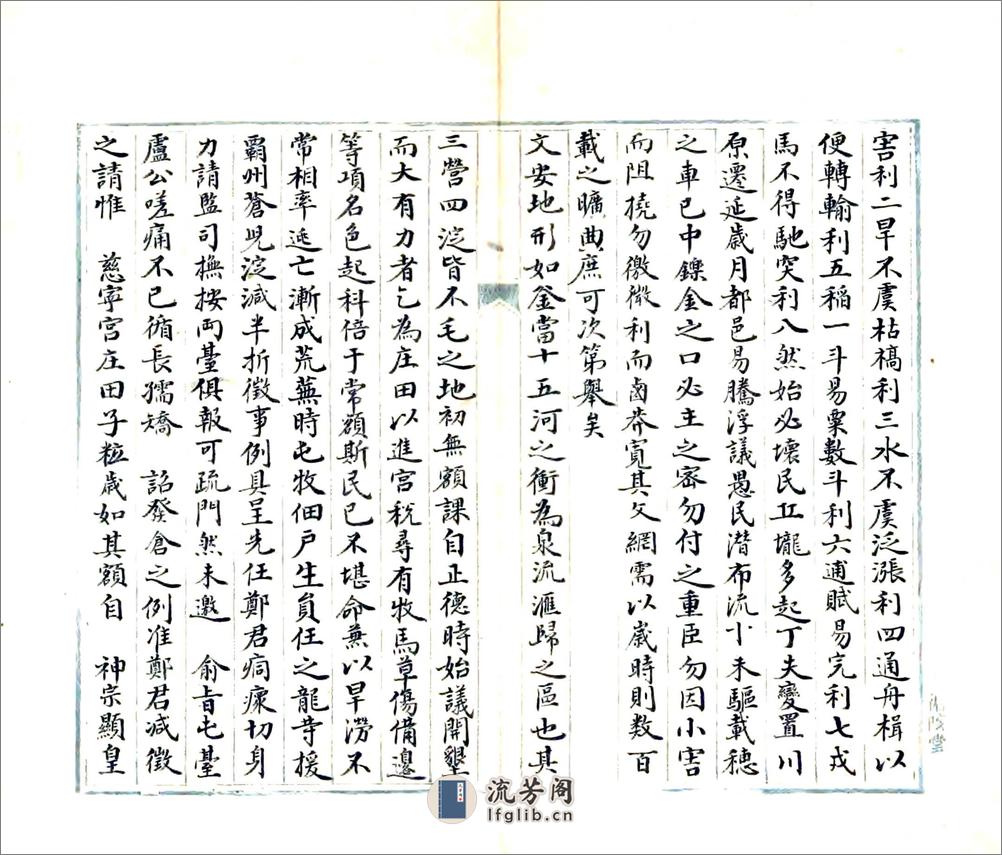 害利二旱不虞枯槁利三水不虞泛漲利四通舟楫以
便轉輸利五稻一斗易粟數斗利六逋賦易完利七戎
馬不得馳突利八然始必壞民丘壠多起丁夫變置川
原遷延歲月都邑易騰浮議愚民潜布流卜未驅載穗
之車已中鑠金之口必主之密勿付之重臣勿因小害
而阻撓勿徼微利而鹵莽寬其文網需以歲時則数百
載之曠典庶可次第舉矣
文安地形如釜當十五河之衝為泉流滙歸之區也其
三營四淀皆不毛之地初無額課自正德時始議開墾
而大有力者乞為庄田以進宮稅尋有牧馬草傷備邊
等項名色起科倍于常額斯民已不堪命兼以旱澇不
常相率逃亡漸成荒蕪時屯牧佃戶生員任之龍寺援
霸州蒼児淀減半折徵事例具呈先任鄭君痌瘝切身
力請監司撫按両臺俱報可疏門然未邀　俞旨屯臺
盧公嗟痛不已循長孺矯　詔發倉之例准鄭君减徵
之請惟　慈寧宮庄田子粒歲如其額自　神宗顯皇
流芳阁
lfglib.cn